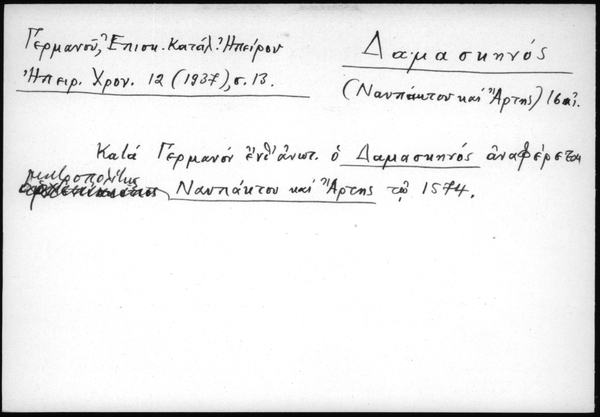 Γερμανοῦ, Ἐπισκ. Κατάλ. Ἠπείρου
Ἠπειρ. Χρον. 12 (1937), σ. 13.
Δαμασκηνός
(Ναυπάκτου καὶ Ἄρτης) 16 αἰ.
Κατὰ Γερμανὸν ἔνθ' ἀνωτ. ὁ Δαμασκηνός ἀναφέρεται
μητροπολίτης
Ναυπάκτου καὶ Ἄρτης τῷ 1574.